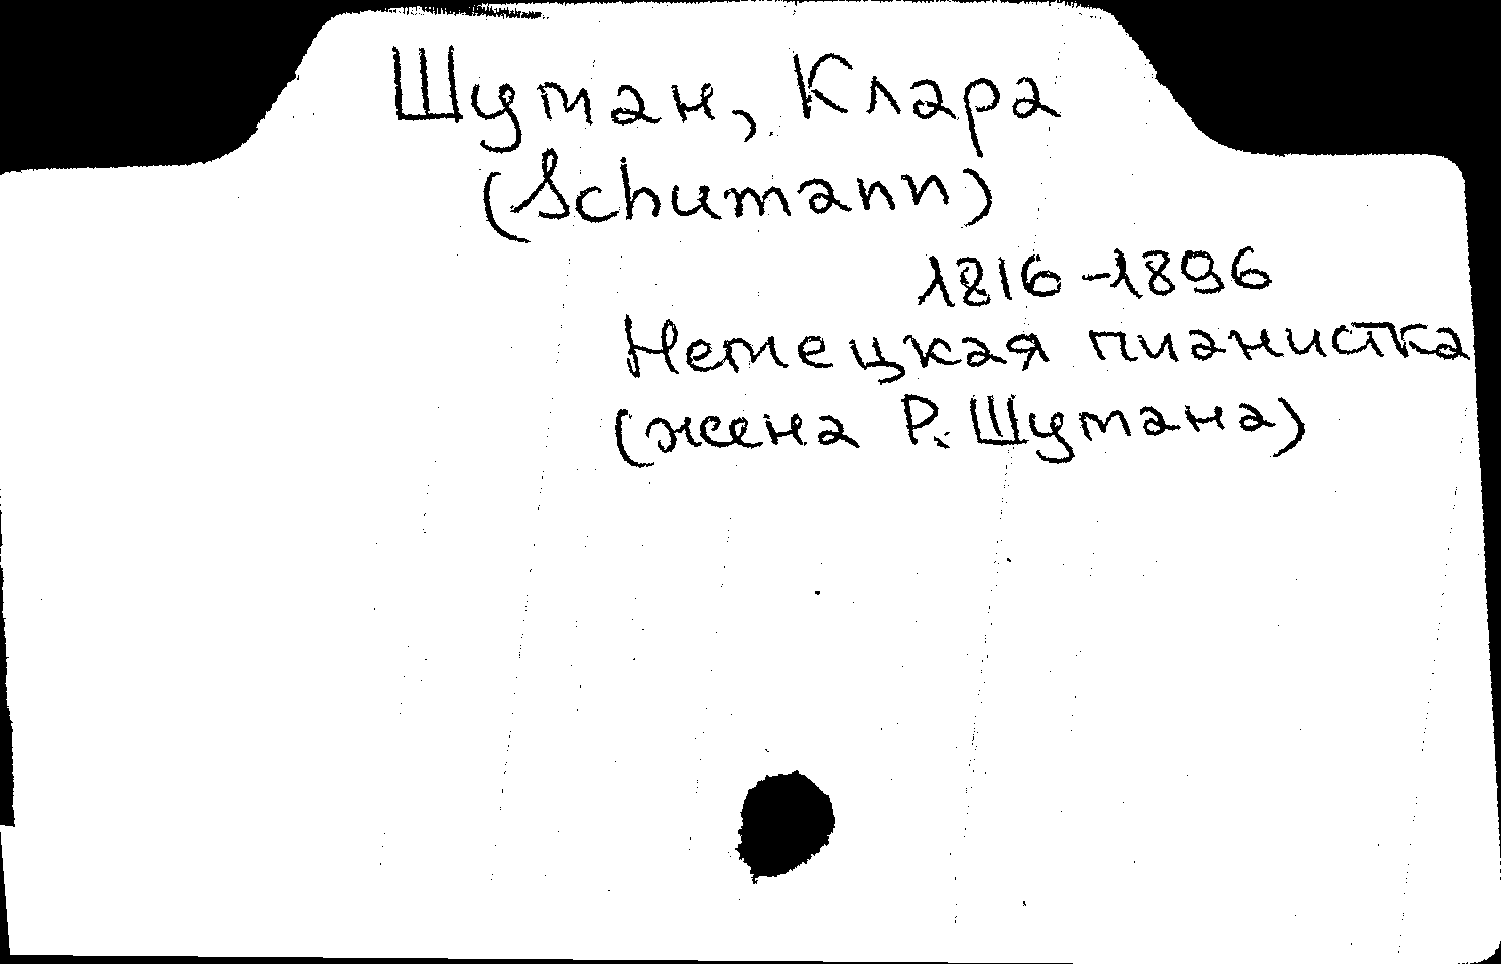 Шуман, Клара
(Schumann)
1816-1896
Немецкая пианистка
(жена Р. Шумана)